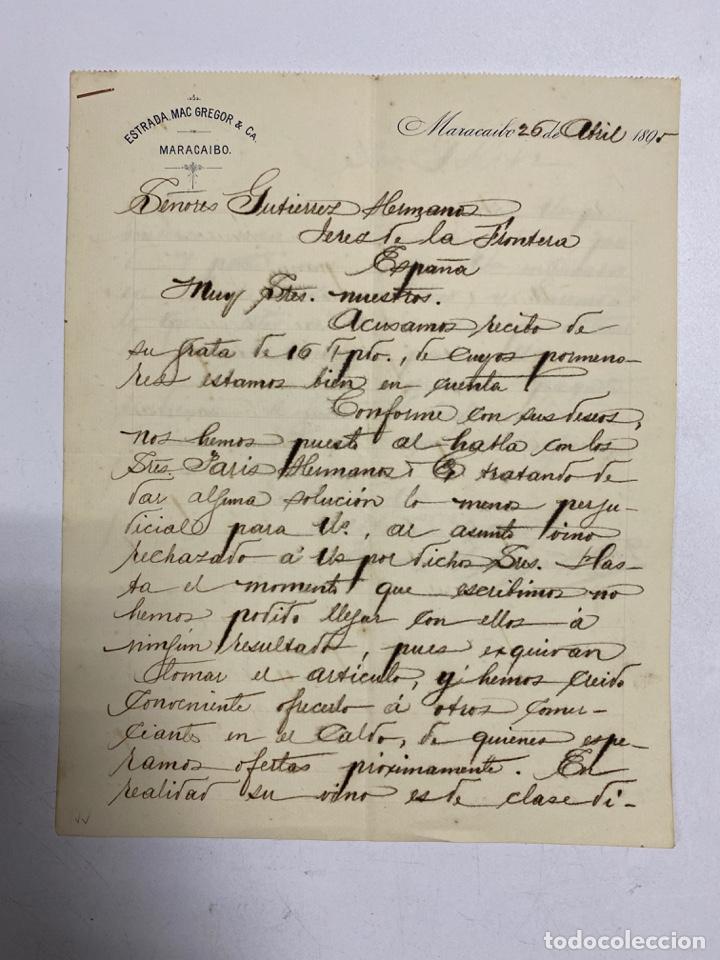 ESTRADA, MAC GREGOR & CA.
MARACAIBO.
Maracaibo 26 de Abril 1895
Señores Gutierrez Hermanos
Jerez de la Frontera
España
Muy Sres. nuestros.
Acusamos recibo de
su grata de 16 Ppdo., de cuyos pormeno-
res estamos bien en cuenta.
Conforme con sus deseos,
nos hemos puesto al habla con los
Sres. Paris Hermanos, tratando de
dar alguna solución lo menos perju-
dicial para Us., al asunto vino
rechazado á Us por dichos Sres. Has-
ta el momento que escribimos no
hemos podido llegar con ellos á
ningún resultado, pues exquivan
tomar el artículo, y hemos creido
conveniente ofrecerlo á otros comer-
ciantes en el Caldo, de quienes espe-
ramos ofertas próximamente. En
realidad su vino es de clase di-
todocoleccion.net